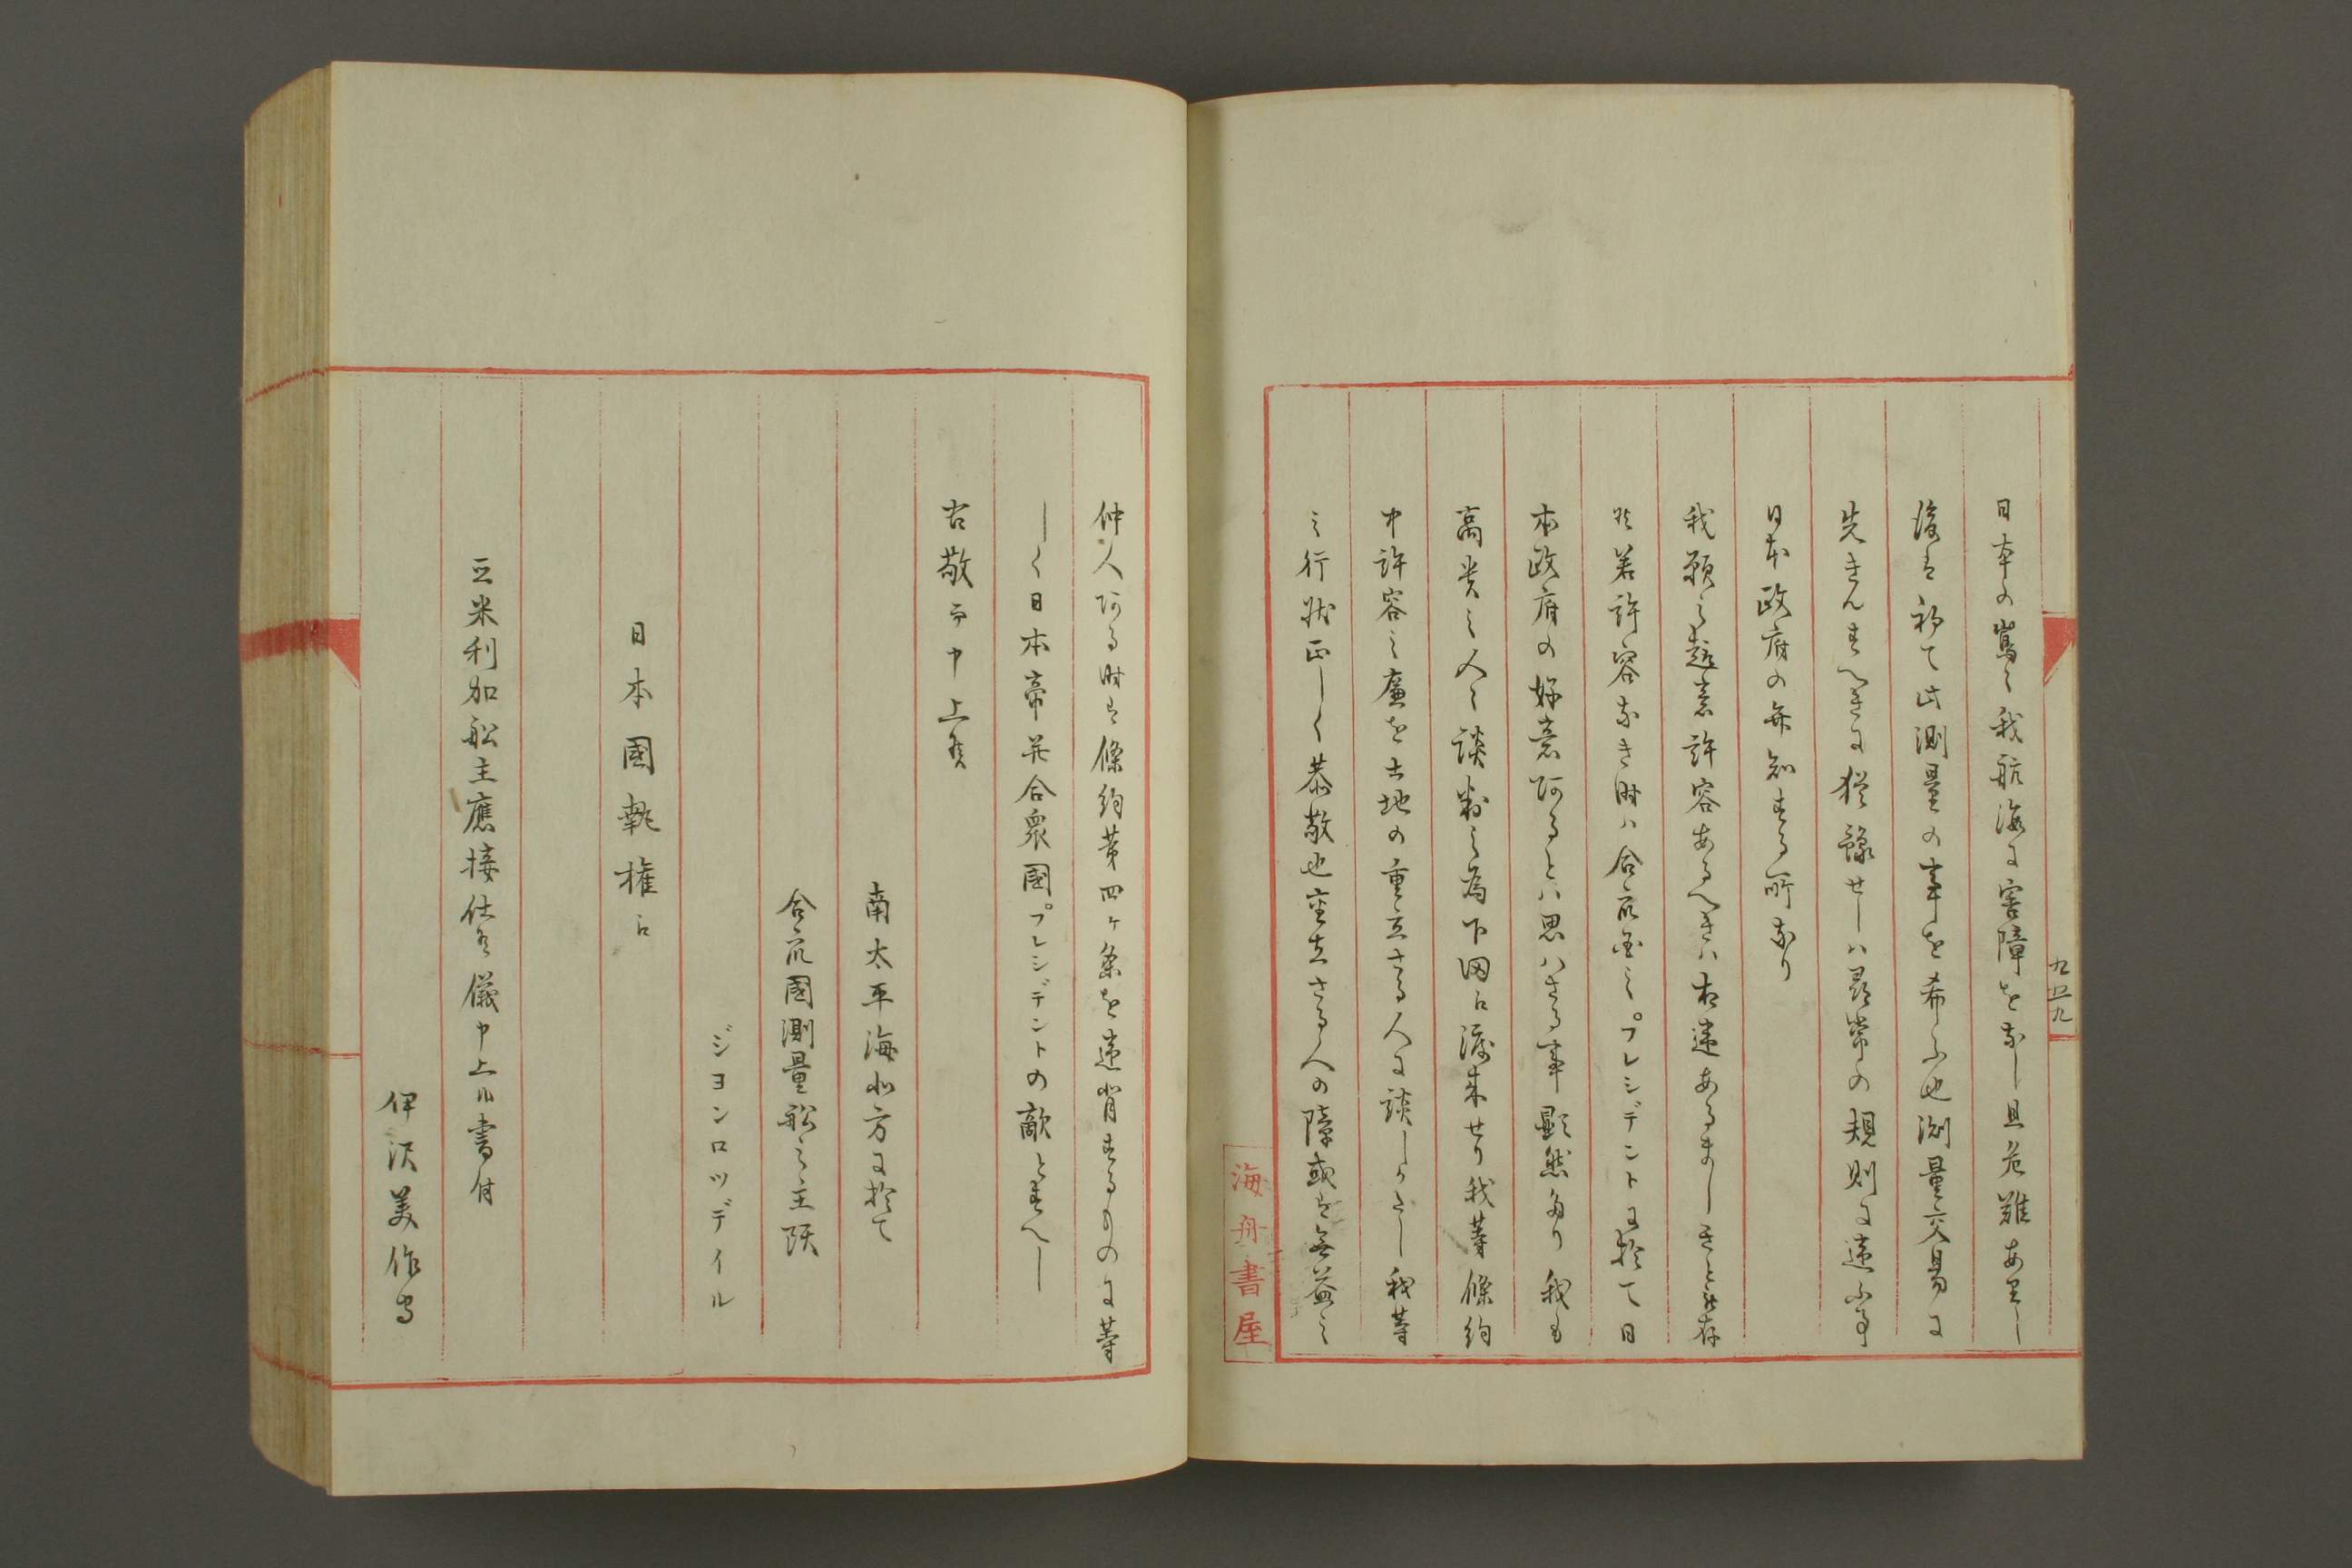 日本の嶌々我航海に害障をなし且危難あるし
後を初て此測量の事を希ふ也測量交易に
先きんすへきに猶豫せしハ尋常の規則に違ふ事
日本政府の無知する所なり
我願之趣意許容あるへきハ相違あるましきと被存
候若許容なき時ハ合衆国之プレシデントに於て日
本政府の好意阿るとハ思ハさる事顕然たり我も
高貴之人と談判之為下田に渡来せり我等條約
中許容之廉を土地の重立さる人に談しかたし我等
之行状正しく恭敬也重立さる人の障或は無益之
海舟書屋
九五九
仲人阿る時は條約第四ヶ条を違背するものに等
しく日本帝并合衆國プレシデントの敵とすへし
右敬而申上候
南太平海北方に於て
合衆國測量船之主頭
ジヨンロツデイル
日本國執権に
亜米利加船主應接仕候儀申上ル書付
伊沢美作守